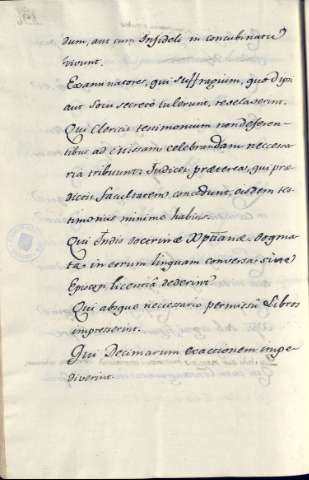 dum, aut cum Infideli in concubinatu
vivunt.
Examinatores, qui suffragium, quod ipsi
aut Socii secreto tulerunt, revelaverint.
Qui Clericis testimonium non deferen-
tibus ad Missam celebrandam necessa-
ria tribuunt: Judices praeterea, qui prae-
dictis facultatem concedunt, eisdem tes-
timoniis minime habitis.
Qui Indis doctrinae Xptianae dogma-
ta in eorum linguam conversa sine
Episcop. licentiâ dederint
Qui absque necessario permissu Libros
impresserint.
Qui Decimarum exactionem impe-
diverint.